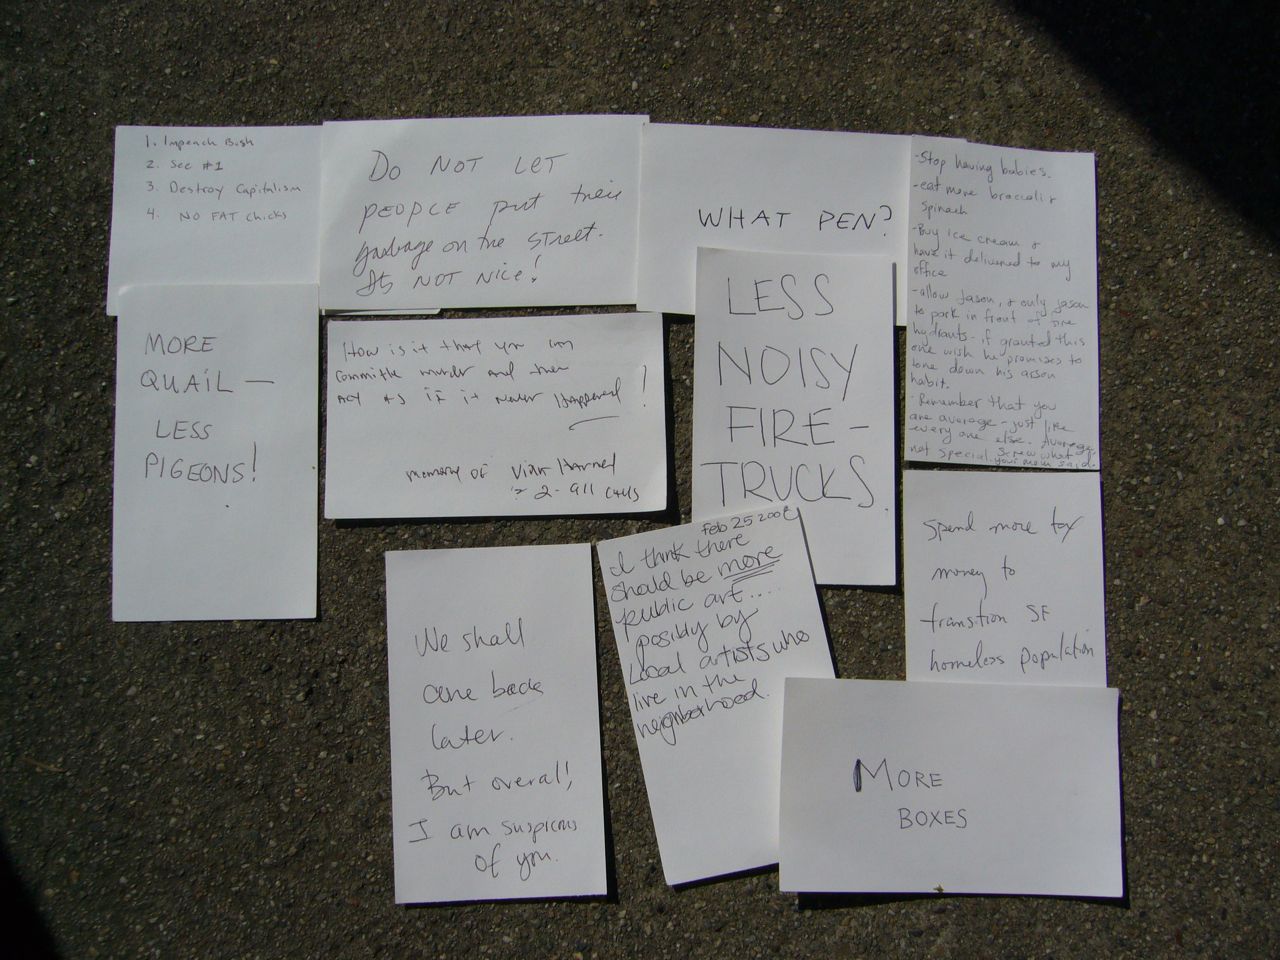 1. Impeach Bush
2. See #1
3. Destroy Capitalism
4. NO FAT chicks
DO NOT LET
PEOPLE put their
garbage on the STREET.
Its NOT NICE!
WHAT PEN?
-Stop having babies.
-eat more broccoli &
spinach
-Buy ice cream &
have it delivered to my
office
-allow Jason, & only Jason
to park in front of fire
hydrants - if granted this
one wish he promises to
tone down his arson
habit.
-Remember that you
are average - just like
every one else. Average,
not special. Screw what
your mom said.
MORE
QUAIL —
LESS
PIGEONS!
How is it that you can
committe murder and then
Act as if it never Happened!
memory of
2-911 calls
LESS
NOISY
FIRE-
TRUCKS.
Feb 25
I think there
should be more
public art....
posibly by
Local artists who
live in the
neighborhood.
Spend more tax
money to
transtion SF
homeless population
We shall
come back
later.
But overall,
I am suspicious
of you.
MORE
BOXES